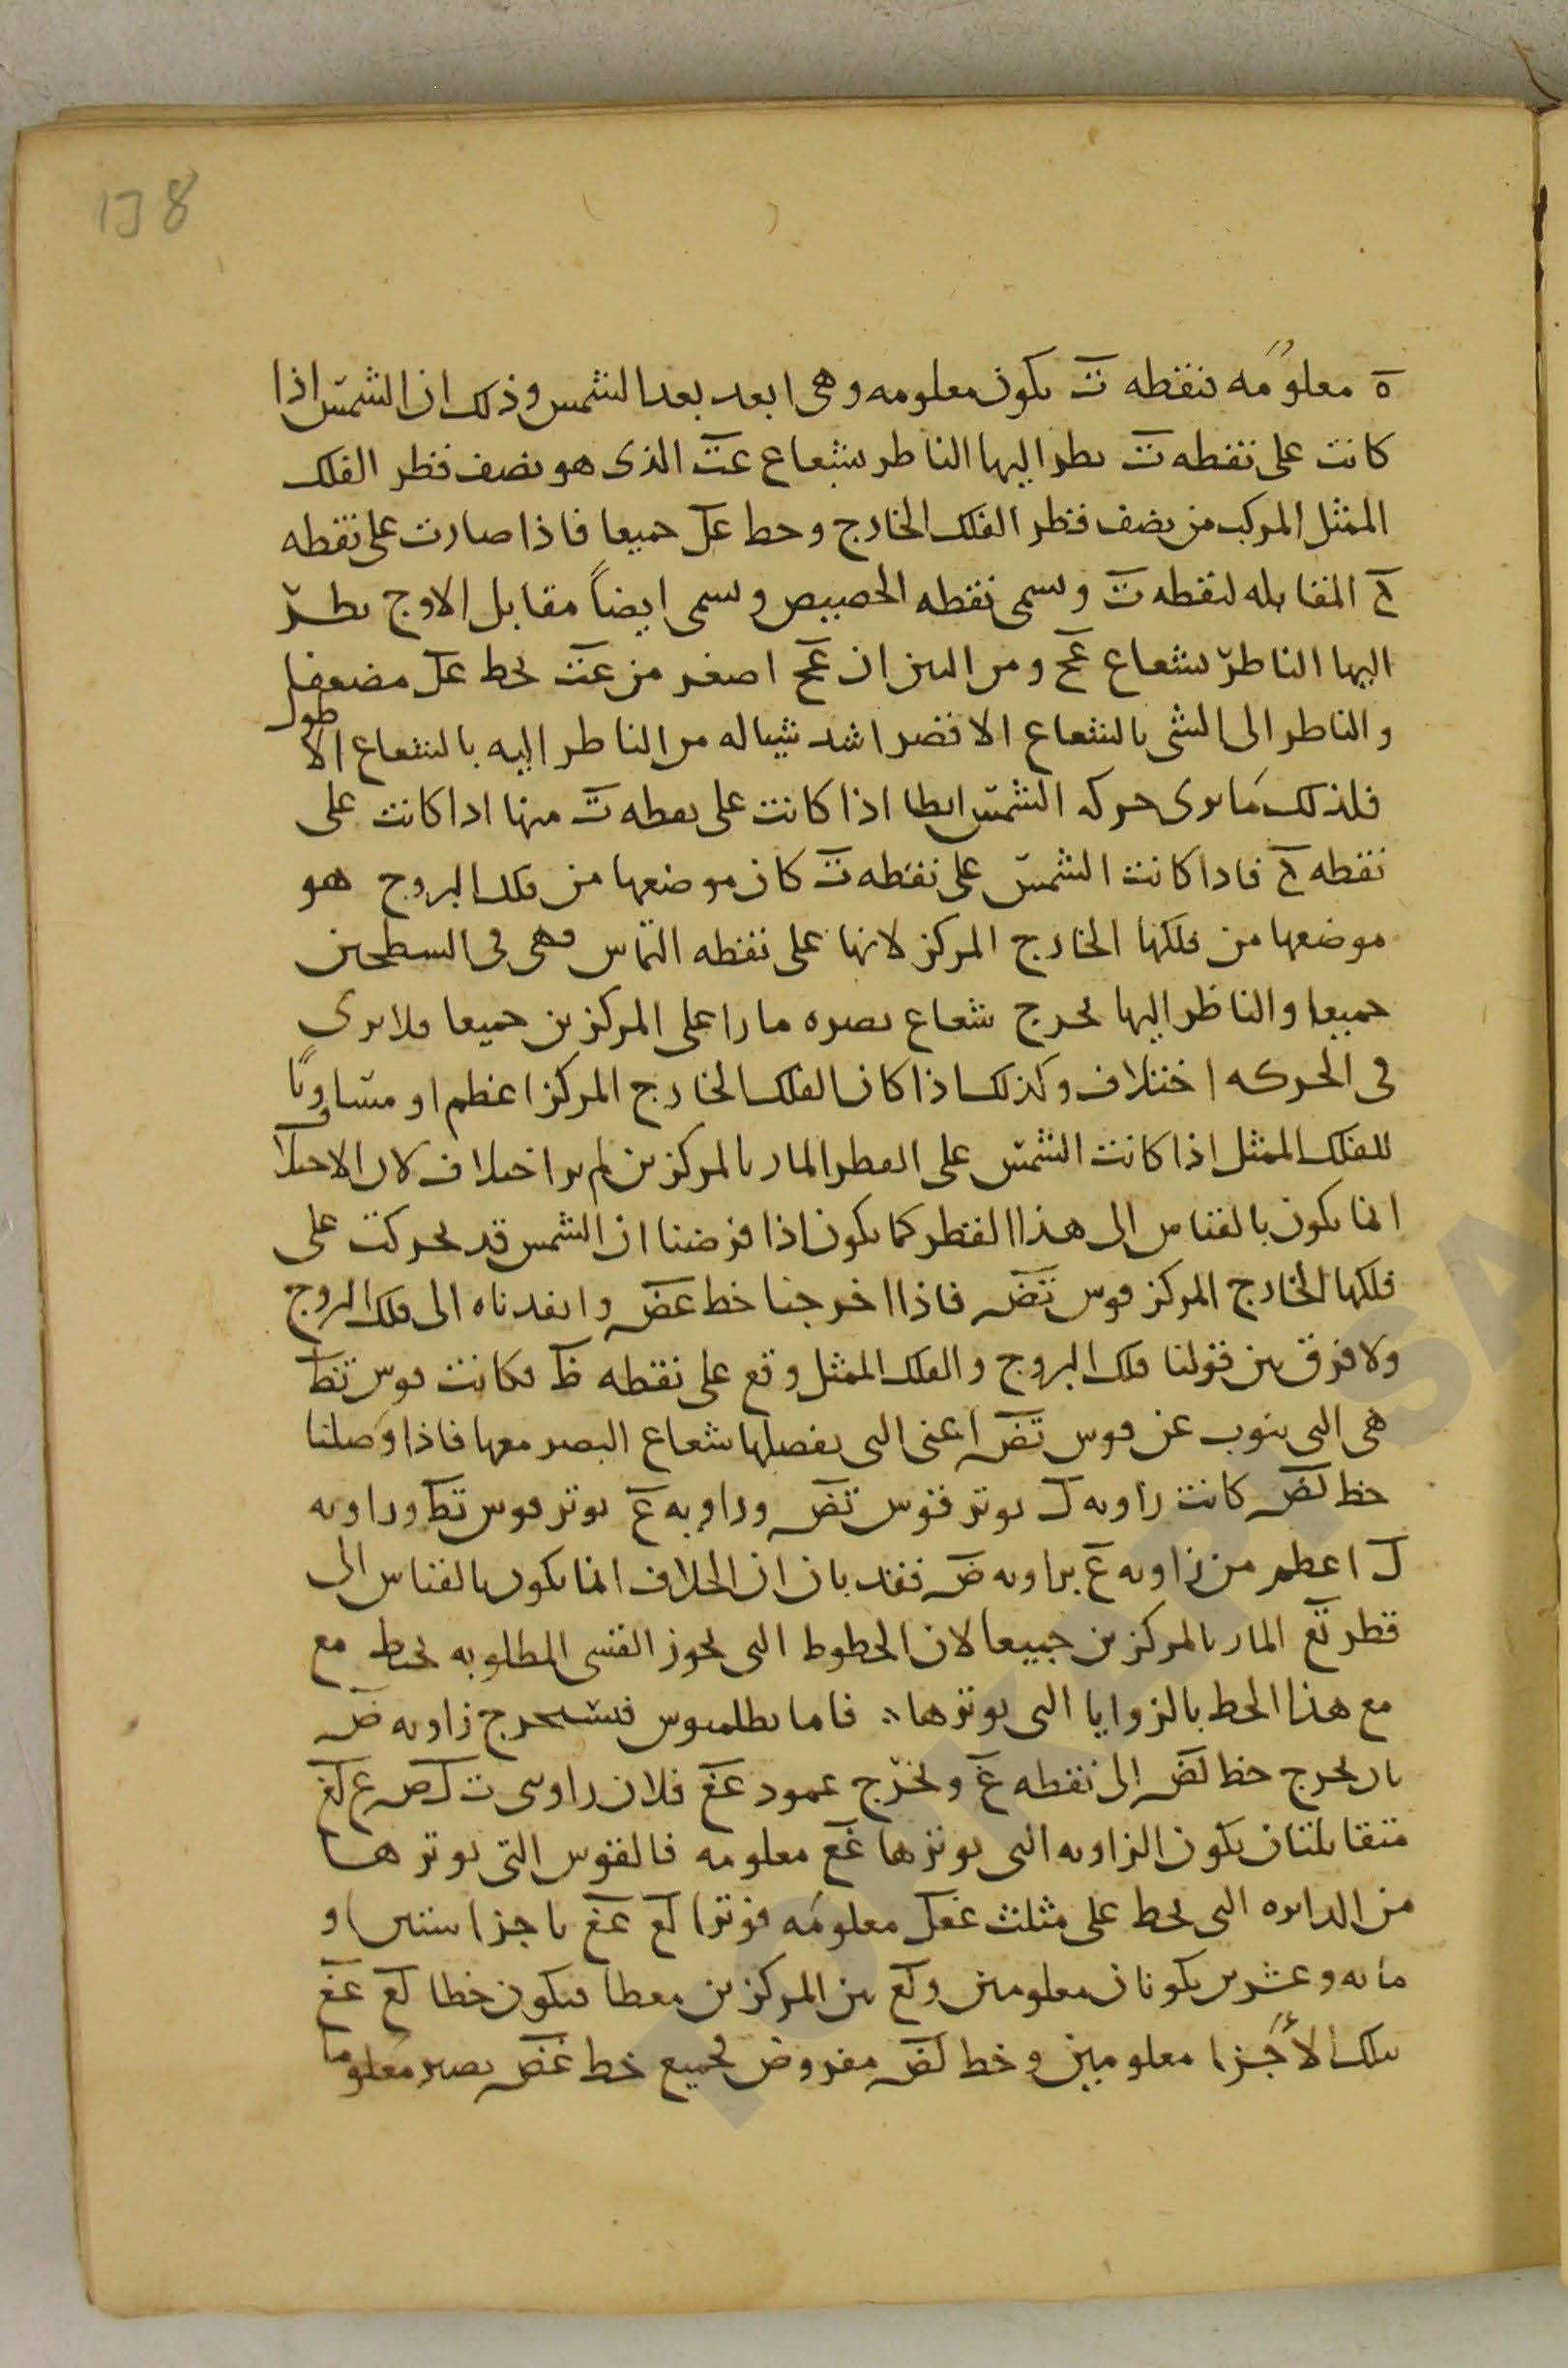 138
ة معلومه فنقطه ت تكون معلومه وهى ابعد بعد الشمس وذلك ان الشمس اذا
كانت على نقطه ت نظر اليها الناظر بشعاع عت الذى هو نصف قطر الفلك
الممثل المركب من نصف قطر الفلك الخارج وخط عل جميعا فاذا صارت على نقطه
ح المقابله لنقطه ت وتسمى نقطه الحضيض وتسمى ايضاً مقابل الاوج نظر
اليها الناظر بشعاع عح ومن البين ان عح اصغر من عت بخط عل مضعفا
والناظر الى الشى بالشعاع الاقصر اشد من الناظر اليه بالشعاع الاطول
فلذلك ما يرى حركه الشمس ابطا اذا كانت على نقطه ت منها اذا كانت على
نقطه ح فاذا كانت الشمس على نقطه ت كان موضعها من فلك البروج هو
موضعها من فلكها الخارج المركز لانها على نقطه التماس وهى فى السطحين
جميعا والناظر اليها يخرج شعاع بصره مارا على المركزين جميعا فلا يرى
فى الحركه اختلاف وكذلك اذا كان الفلك الخارج المركز اعظم او مساويًا
للفلك الممثل اذا كانت الشمس على القطر المار بالمركزين لم ير اختلاف لان الاختلاف
انما يكون بالقياس الى هذا القطر كما يكون اذا فرضنا ان الشمس قد تحركت على
فلكها الخارج المركز قوس تض فاذا اخرجنا خط عض وانفدناه الى فلك البروج
ولا فرق بين قولنا فلك البروج والفلك الممثل وقع على نقطه ظ فكانت قوس تظ
هى التى ينوب عن قوس تض اعنى التى يفصلها شعاع البصر معها فاذا وصلنا
خط لض كانت زاويه ل يوتر قوس تض وزاويه ع يوتر قوس تظ وزاويه
ل اعظم من زاويه ع بزاويه ض فقد بان ان الخلاف انما يكون بالقياس الى
قطر تع المار بالمركزين جميعا لان الخطوط التى يحوز القسى المطلوبه يحيط مع
مع هذا الخط بالزوايا التى يوترها فاما بطلميوس فيستخرج زاويه ض
بان يخرج خط لض الى نقطه غ ويخرج عمود عغ فلان زاويتى ت لض ع لغ
متقابلتان يكون الزاويه التى يوترها غع معلومه فالقوس التى يوترها
من الدايره التى يحيط على مثلث غعل معلومه فوترا لع عغ باجزا ستين او
مايه وعشرين يكونان معلومين ولع بين المركزين معطا فيكون خطا لع عغ
بتلك الأجزا معلومين وخط لض مفروض فجميع خط غض يصير معلوما